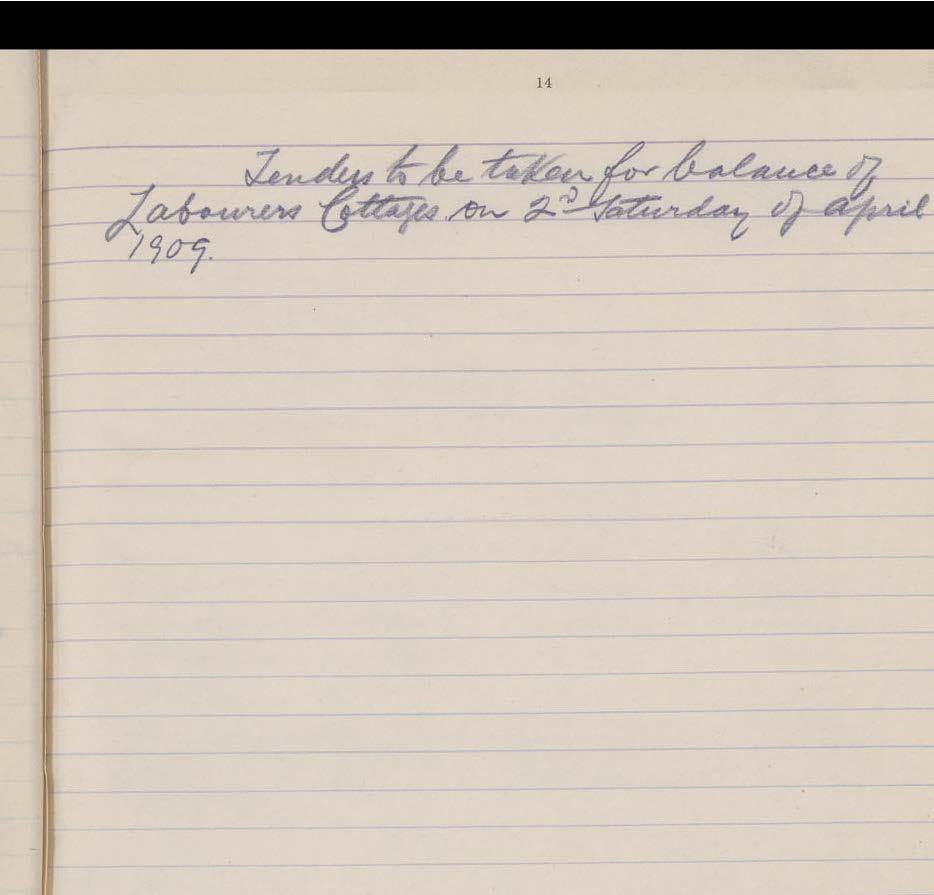 14
Tenders to be taken for balance of
Labourers Cottages on 2d Saturday of april
1909.